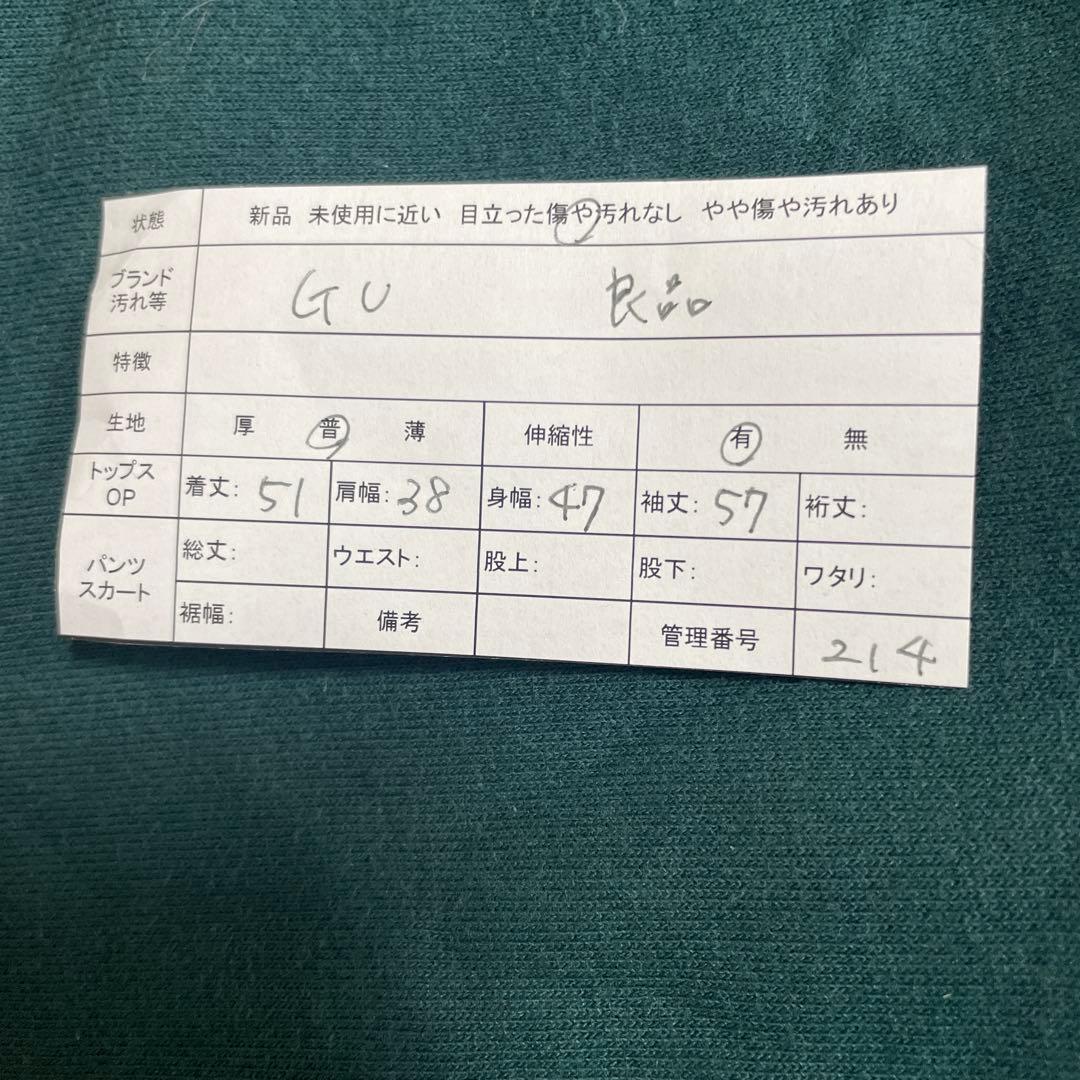 状態 新品 未使用に近い 目立った傷や汚れなし やや傷や汚れあり
ブランド
汚れ等 GU 良品
特徴
生地 厚 普 薄 伸縮性 有 無
トップス
OP 着丈: 51 肩幅: 38 身幅: 47 袖丈: 57 裄丈:
パンツ
スカート 総丈: ウエスト: 股上: 股下: ワタリ:
裾幅: 備考 管理番号 214